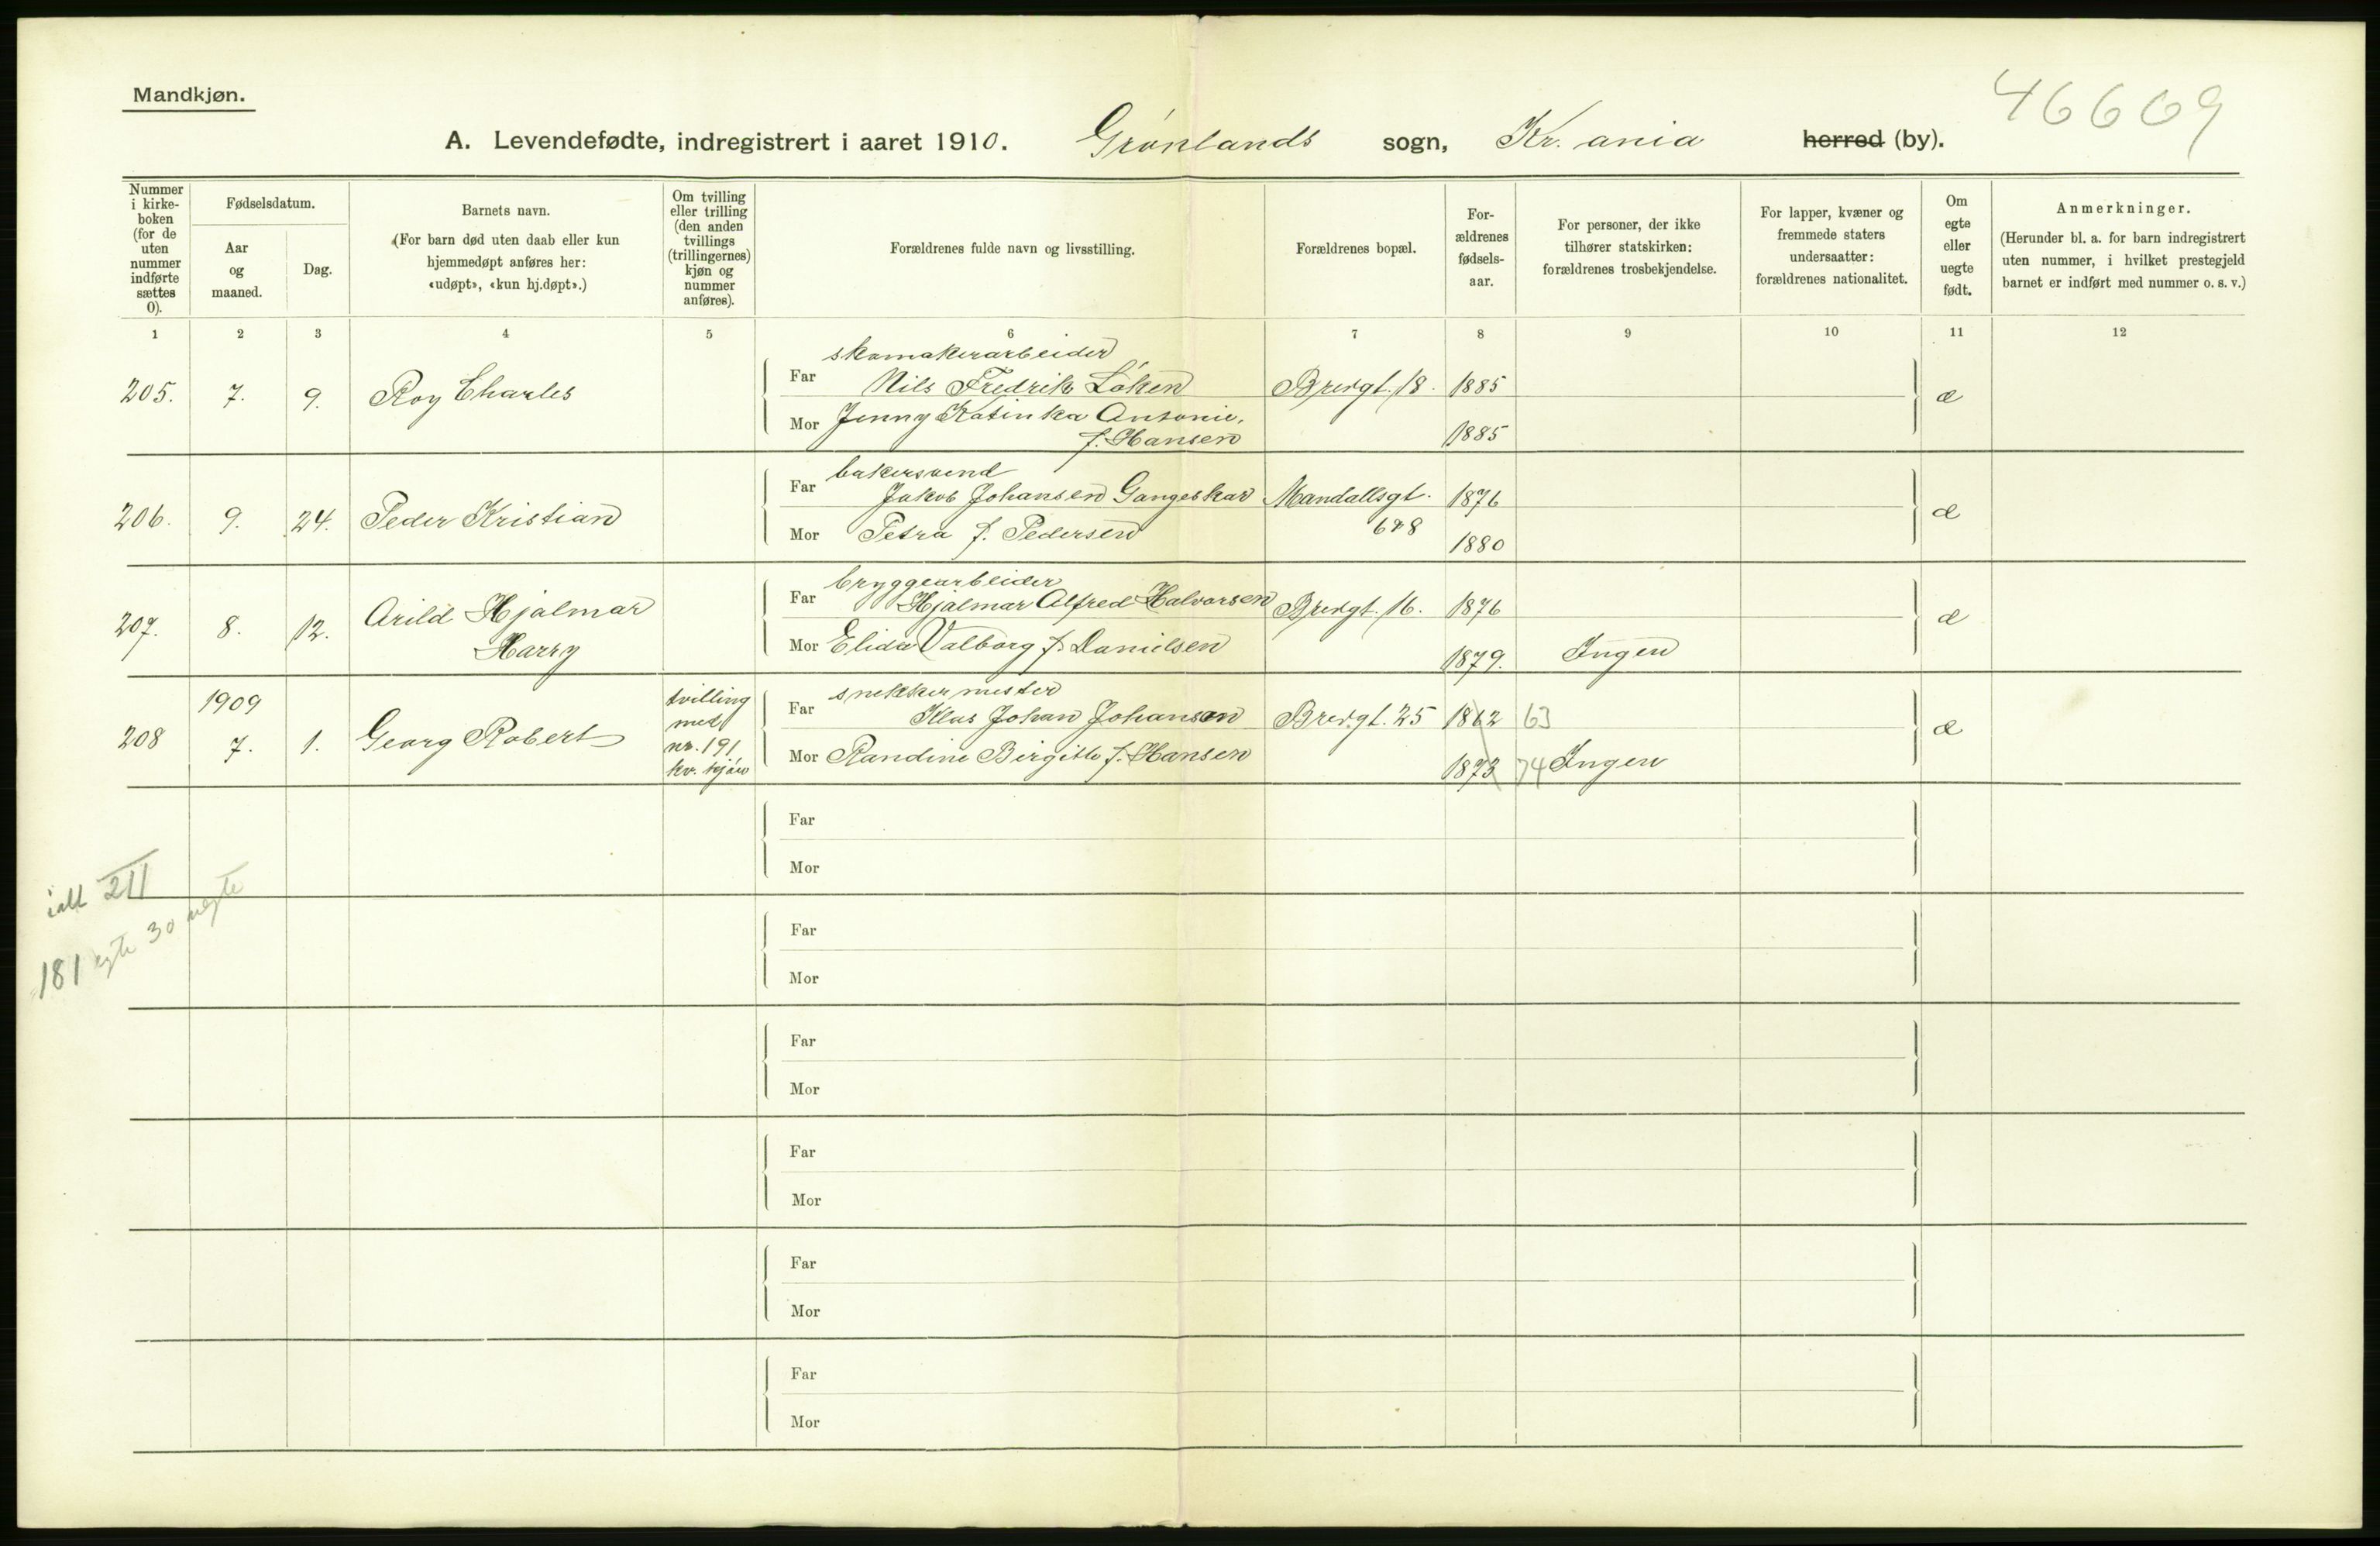 Mandkjøn.
46609
A. Levendefødte, indregistrert i aaret 1910. Grønlands sogn, Kr. ania herred (by).
Nummer i kirkeboken (for de uten nummer indførte sættes 0).
Fødselsdatum.
Aar og maaned.
Dag.
Barnets navn.
(For barn død uten daab eller kun hjemmedøpt anføres her: «udøpt», «kun hj.døpt».)
Om tvilling eller trilling (den anden tvillings (trillingernes) kjøn og nummer anføres).
Forældrenes fulde navn og livsstilling.
Forældrenes bopæl.
Forældrenes fødselsaar.
For personer, der ikke tilhører statskirken: forældrenes trosbekjendelse.
For lapper, kvæner og fremmede staters undersaatter: forældrenes nationalitet.
Om egte eller uegte født.
Anmerkninger.
(Herunder bl. a. for barn indregistrert uten nummer, i hvilket prestegjeld barnet er indført med nummer o. s. v.)
1 2 3 4 5 6 7 8 9 10 11 12
skomakerarbeider
205. 7. 9. Roy Charles Far Nils Fredrik Løken Bredgt. 18. 1885 æ
Mor Jenny Katinka Antonie,
f. Hansen 1885
bakersvend
206. 9. 24. Peder Kristian Far Jakob Johansen Gangeskar Mandallsgt. 1876 æ
Mor Petra f. Pedersen 1880
bryggearbeider
207. 8. 12. Arild Hjalmar Far Hjalmar Alfred Halvorsen Bredgt. 16. 1876 æ
Harry Mor Elida Valborg f. Danielsen 1879. Ingen
1909 tvilling snekkermester
208 7. 1. Georg Robert med Far Klas Johan Johanson Bredgt. 25 1862 63 æ
nr. 191 Mor Randine Birgitte f. Hansen 1873 74 Ingen
kv. kjøn
Far
Mor
ialt 211
181 egte 30 uegte
Far
Mor
Far
Mor
Far
Mor
Far
Mor
Far
Mor